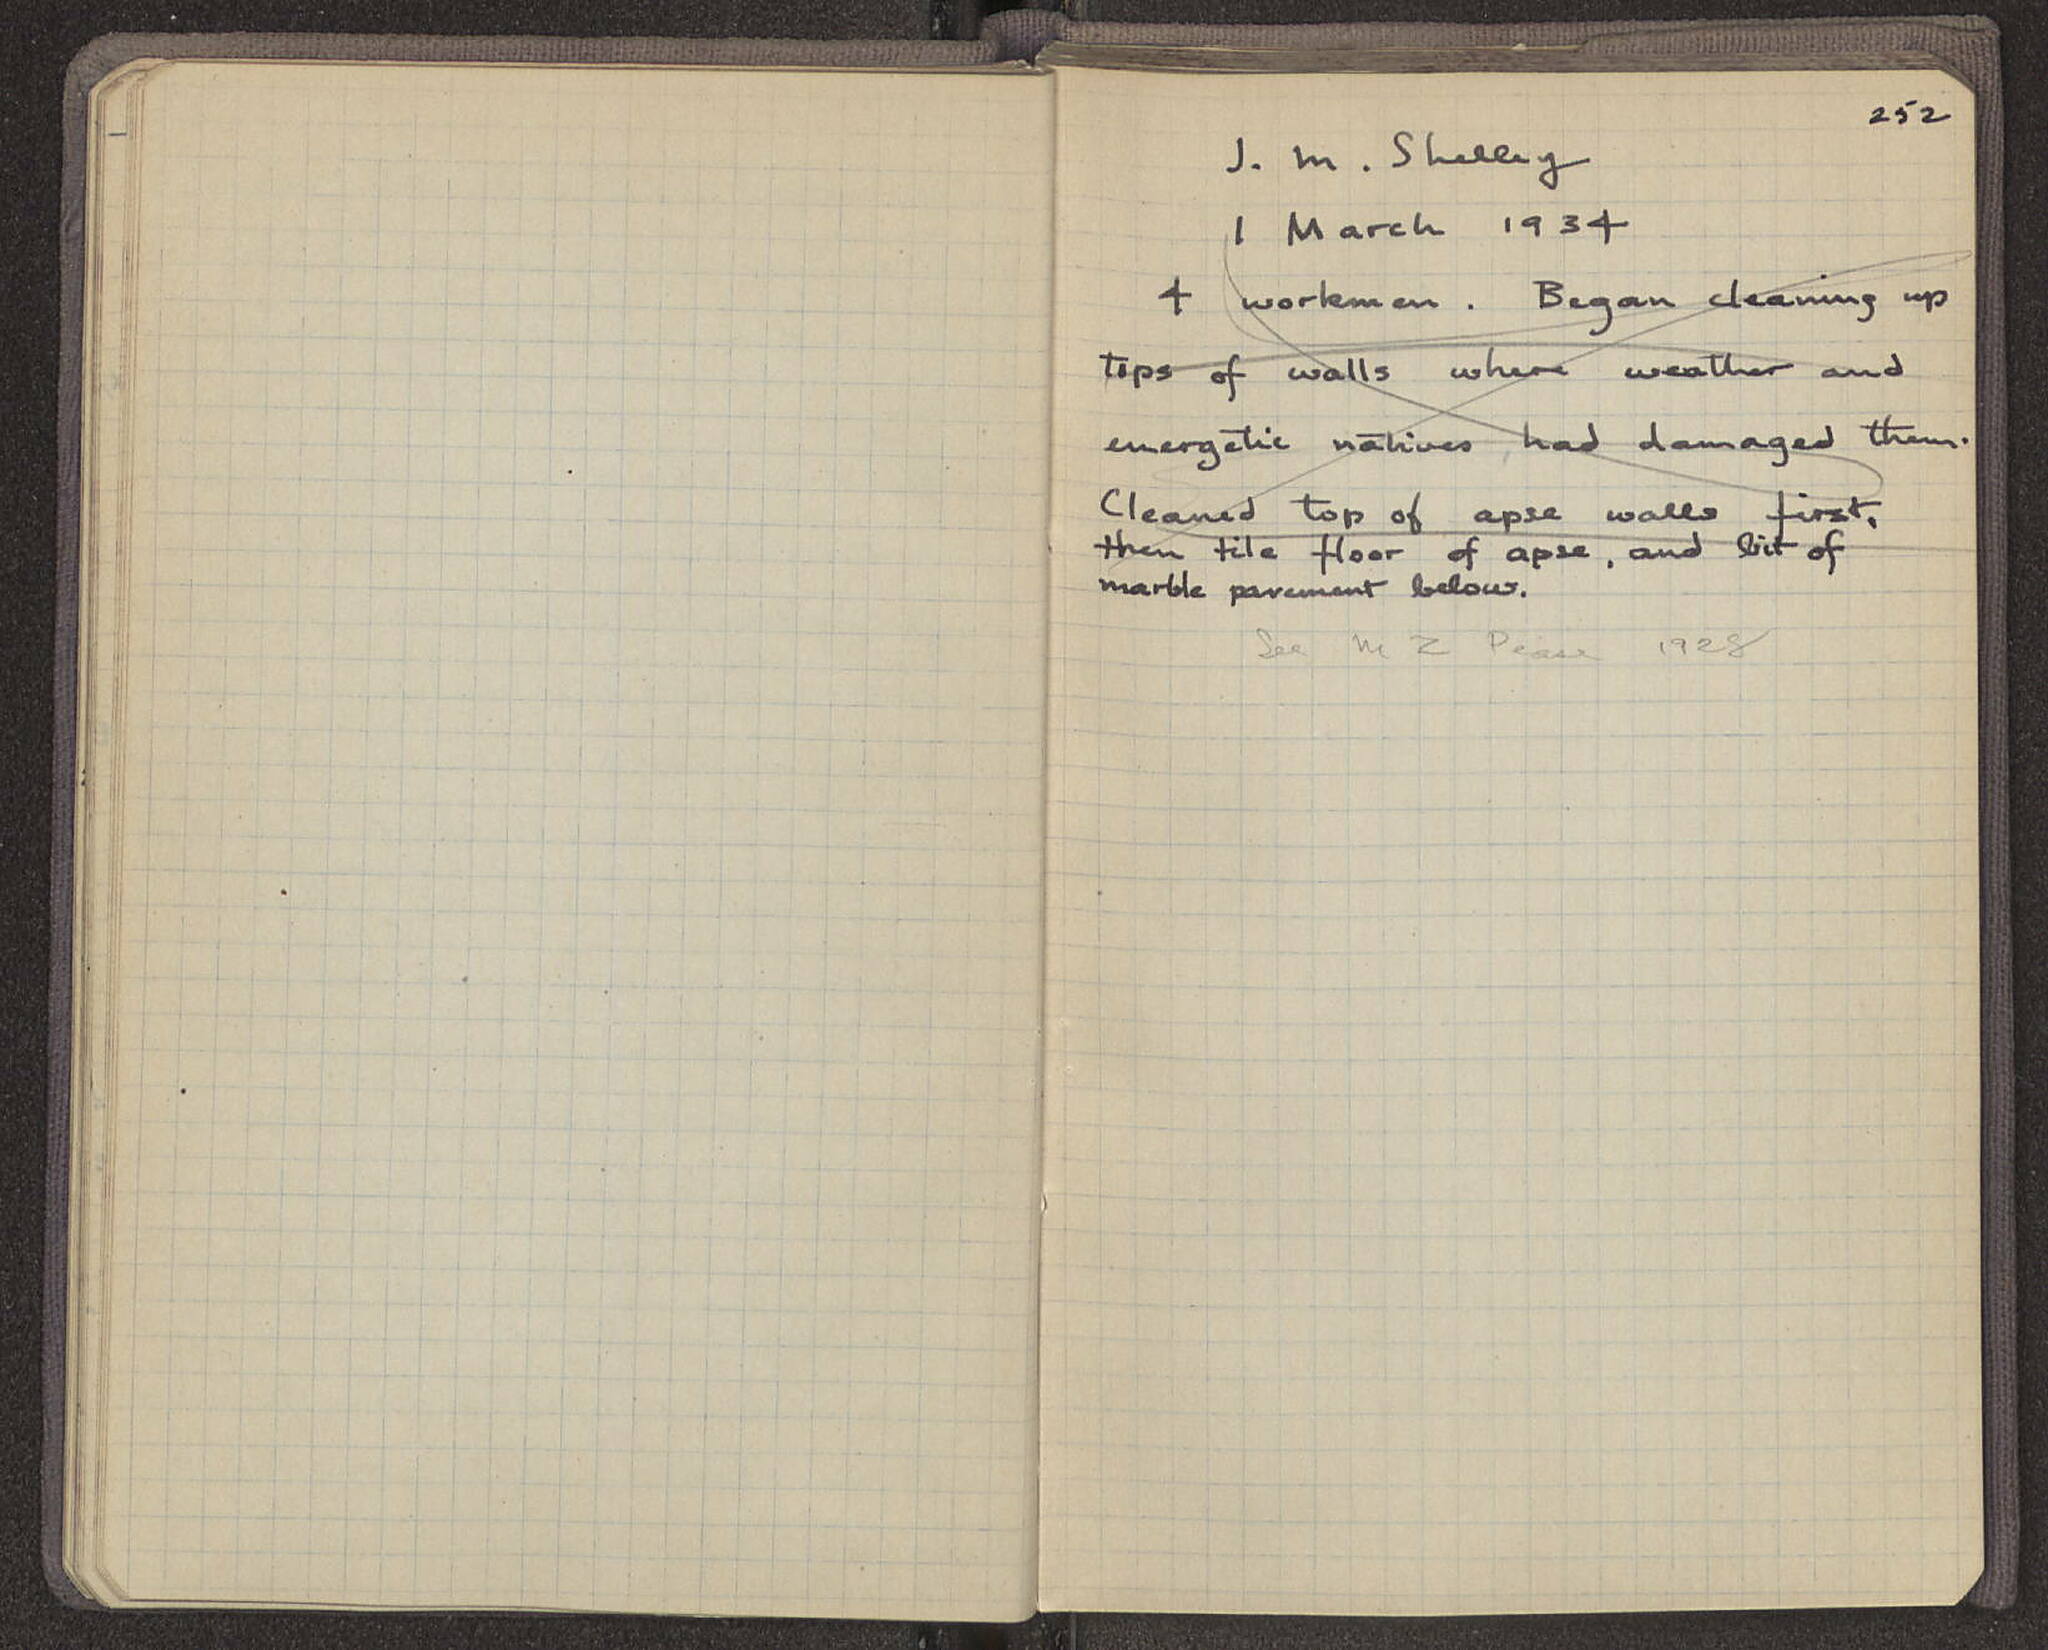 252
J. M. Shelley
1 March 1934
4 workmen. Began cleaning up
tops of walls where weather and
energetic natives had damaged them.
Cleaned top of apse walls first,
then tile floor of apse, and bit of
marble pavement below.
See M Z Pease 1928